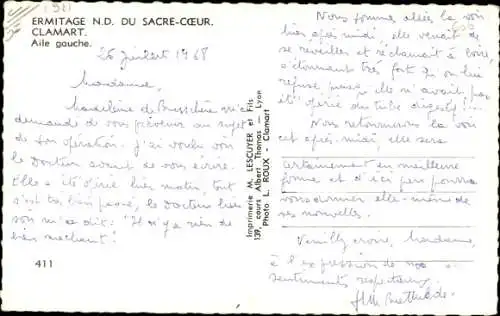 ERMITAGE N.D. DU SACRE-CŒUR.
CLAMART.
Aile gauche.
26 Juillet 1968
Madame,
Madeleine de m'a
demandé de vous prévenir au sujet
de son opération. J'ai voulu voir
le Docteur avant de vous écrire.
Elle a été opérée hier matin, tout
s'est très bien passé, le Docteur hier
soir m'a dit: "Il n'y a rien de
bien méchant".
411
Imprimerie M. LESCUYER et Fils
139, cours Albert Thomas — Lyon
Photo L. ROUX - Clamart
Nous sommes allées la voir
hier après midi elle venait de
se réveiller et réclamait à boire,
s'étonnant très fort qu'on lui
refuse, puisqu'elle n'avait pas
été opérée du tube digestif!...
Nous retournerons la voir
cet après-midi, elle sera
certainement en meilleure
forme et d'ici peu pourra
vous donner elle-même de
ses nouvelles.
Veuillez croire, Madame,
à l'expression de nos
sentiments respectueux.